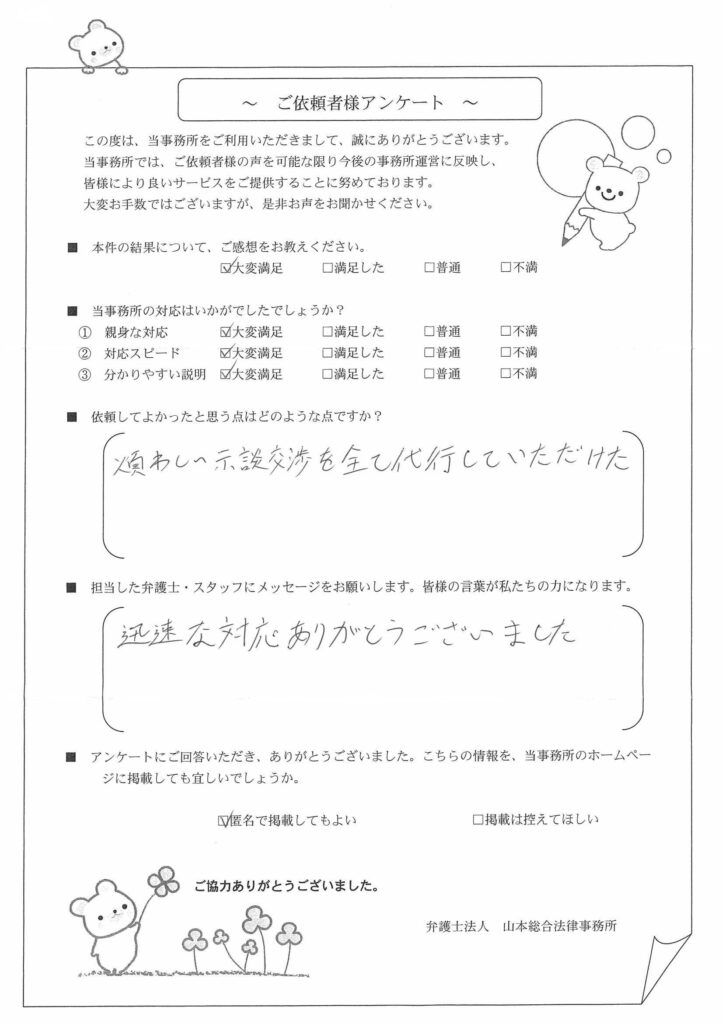 ～ ご依頼者様アンケート ～
この度は、当事務所をご利用いただきまして、誠にありがとうございます。
当事務所では、ご依頼者様の声を可能な限り今後の事務所運営に反映し、
皆様により良いサービスをご提供することに努めております。
大変お手数ではございますが、是非お声をお聞かせください。
■ 本件の結果について、ご感想をお教えください。
☑大変満足 □満足した □普通 □不満
■ 当事務所の対応はいかがでしたでしょうか？
① 親身な対応 ☑大変満足 □満足した □普通 □不満
② 対応スピード ☑大変満足 □満足した □普通 □不満
③ 分かりやすい説明 ☑大変満足 □満足した □普通 □不満
■ 依頼してよかったと思う点はどのような点ですか？
煩わしい示談交渉を全て代行していただけた
■ 担当した弁護士・スタッフにメッセージをお願いします。皆様の言葉が私たちの力になります。
迅速な対応ありがとうございました
■ アンケートにご回答いただき、ありがとうございました。こちらの情報を、当事務所のホームペー
ジに掲載しても宜しいでしょうか。
☑匿名で掲載してもよい □掲載は控えてほしい
ご協力ありがとうございました。
弁護士法人 山本総合法律事務所